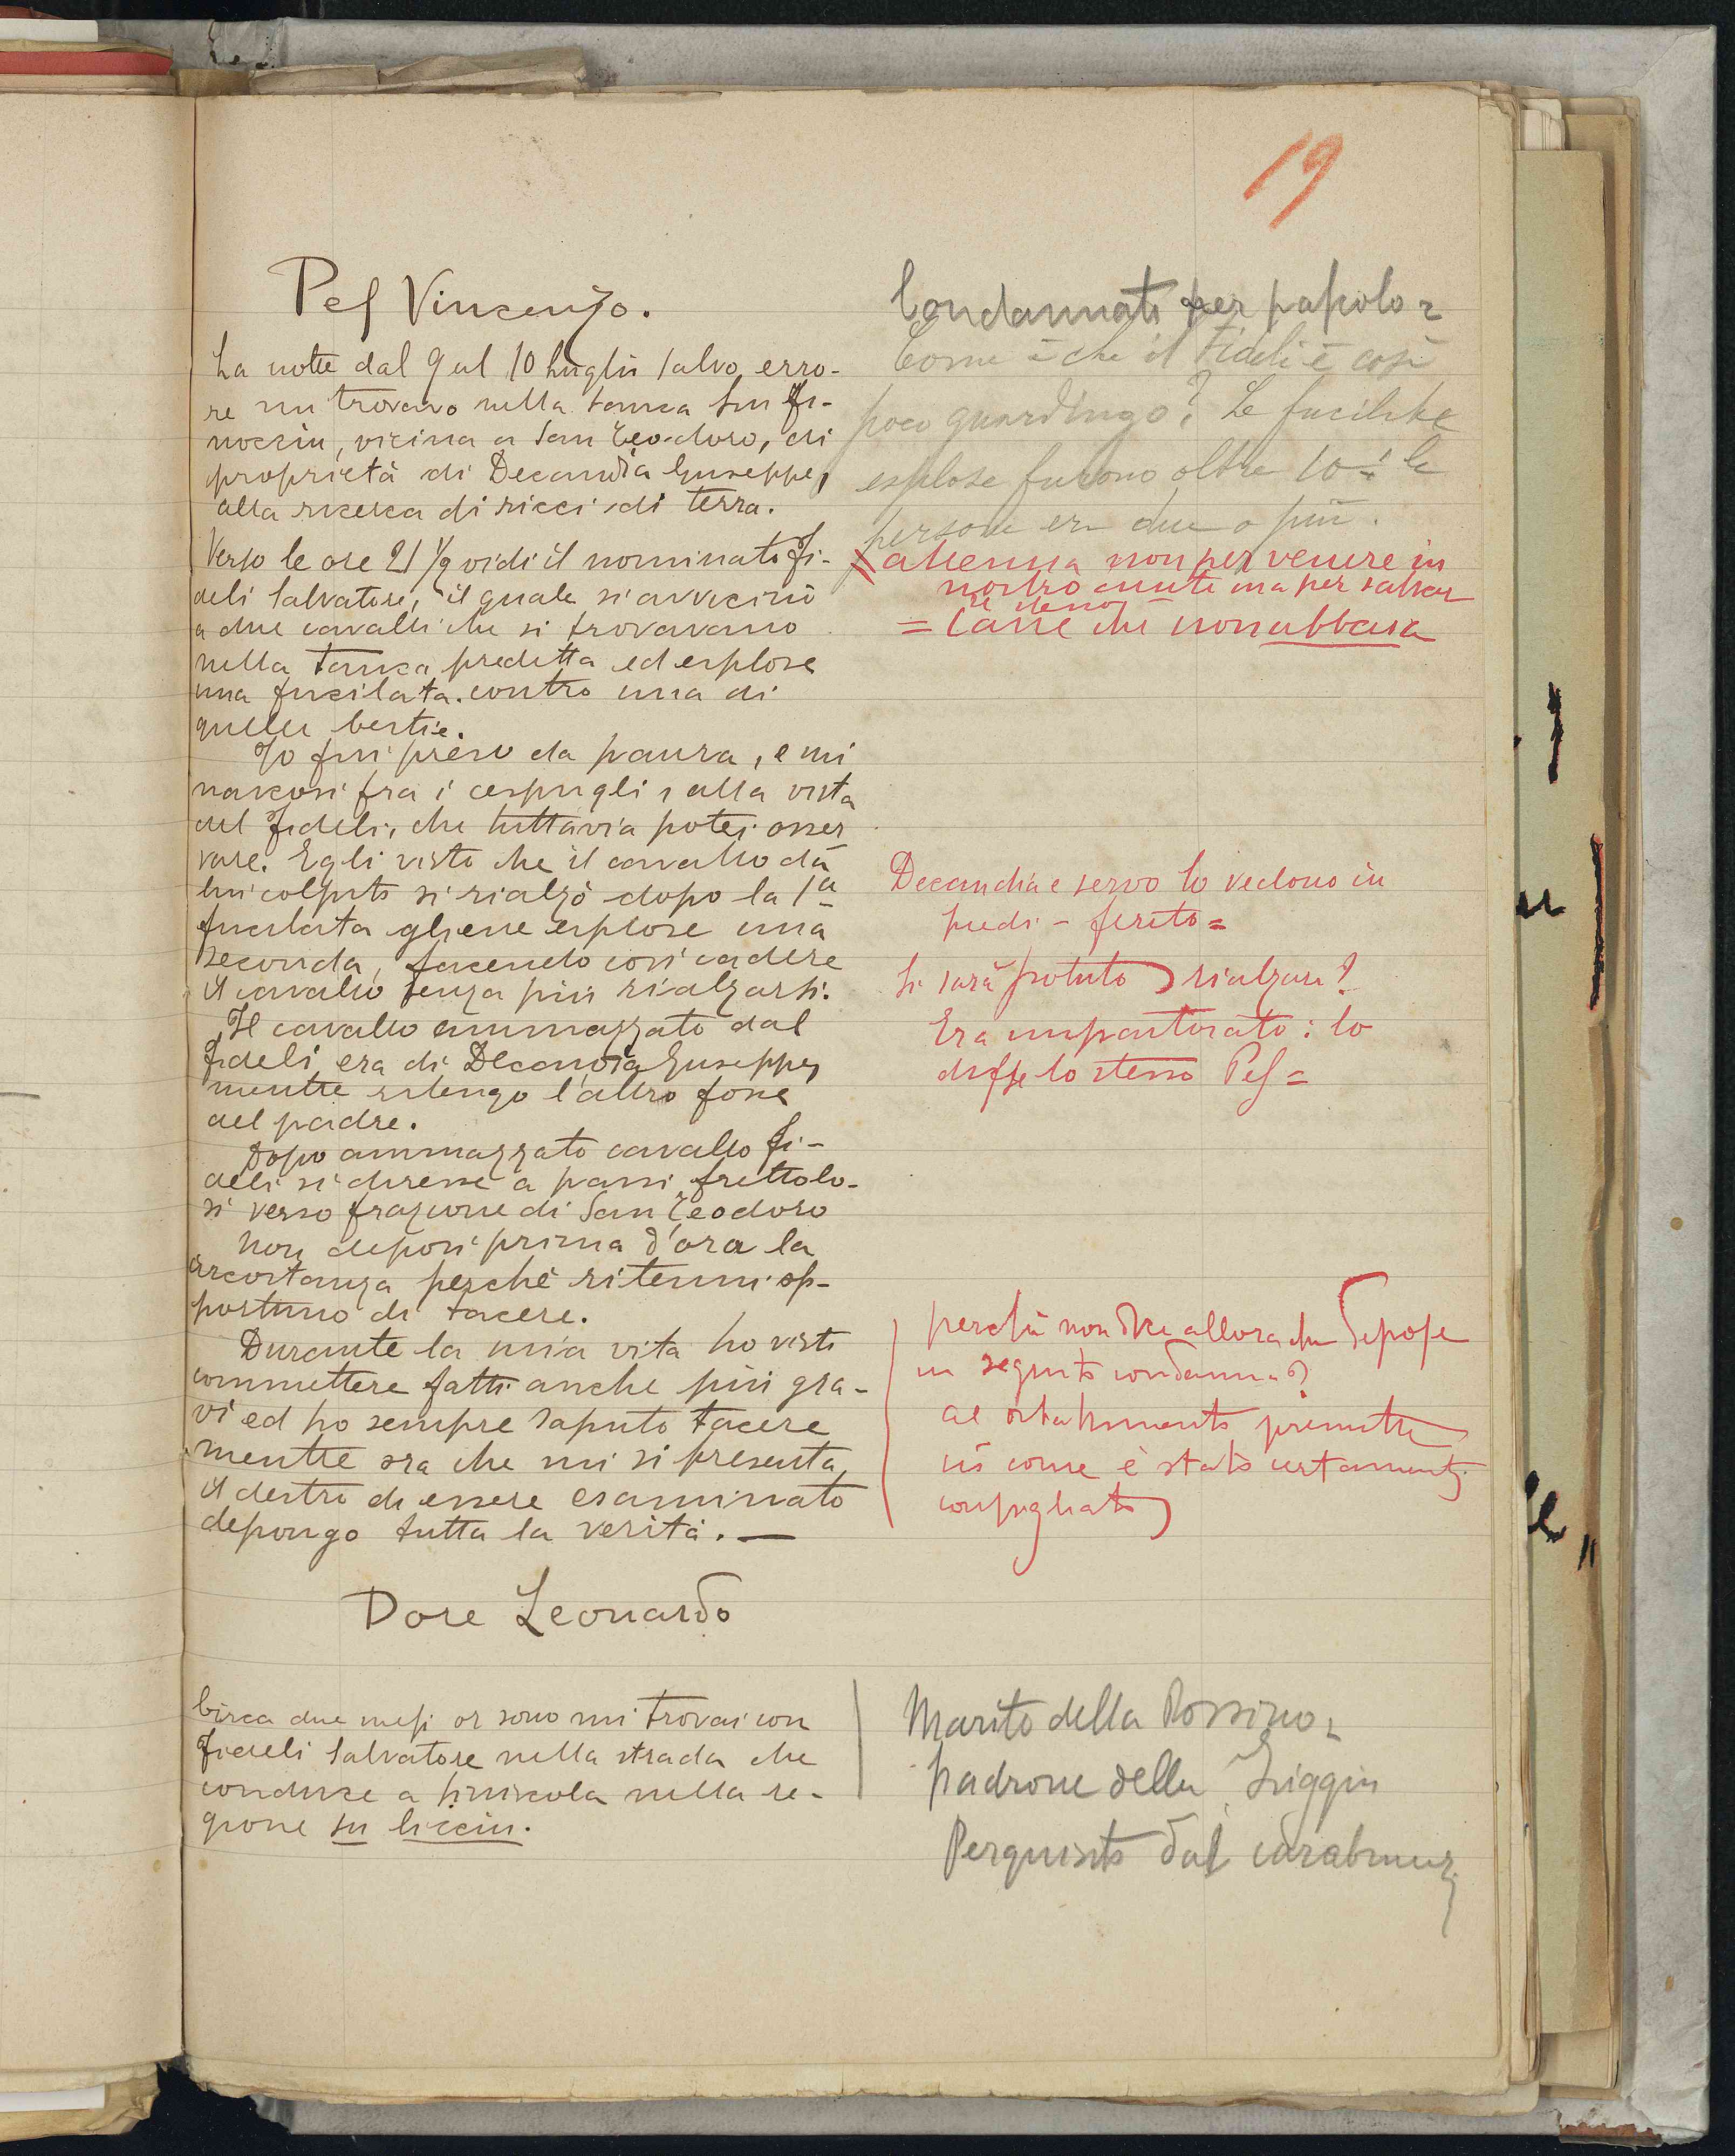 19
Pes Vincenzo.
La notte dal 9 al 10 Luglio salvo erro-
re mi trovavo nella tanca Su Fi-
nocciu, vicina a San Teodoro, di
proprietà di Decandia Giuseppe,
alla ricerca di ricci di terra.
Verso le ore 21 1/2 vidi il nominato Fi-
deli Salvatore, il quale si avvicinò
a due cavalli che si trovavano
nella tanca predetta ed esplose
una fucilata contro una di
quelle bestie.
Io fui preso da paura, e mi
nascosi fra i cespugli, alla vista
del Fideli, che tuttavia potei osser
vare. Egli visto che il cavallo da
lui colpito si rialzò dopo la 1a
fucilata gliene esplose una
seconda, facendo così cadere
il cavallo senza più rialzarsi.
Il cavallo ammazzato dal
Fideli era di Decandia Giuseppe,
mentre ritengo l'altro fosse
del padre.
Dopo ammazzato cavallo Fi-
deli si diresse a passi frettolo-
si verso frazione di San Teodoro
Non deposi prima d'ora la
circostanza perchè ritenni op-
portuno di tacere.
Durante la mia vita ho visto
commettere fatti anche più gra-
vi ed ho sempre saputo tacere
mentre ora che mi si presenta
il destro di essere esaminato
depongo tutta la verità. —
Dore Leonardo
Circa due mesi or sono mi trovai con
Fideli Salvatore nella strada che
conduce a Siniscola nella re-
gione su licciu.
Condannato per pascolo =
Come è che il Fideli è così
poco guardingo? Le fucilate
esplose furono oltre 10 = le
persone eran due o più.
non per venire in
nostro aiuto ma per salvar
se stesso
= Cane che non abbaia
Decandia e servo lo vedono in
piedi - ferito =
Si sarà potuto rialzare?
Era impastorato: lo
disse lo stesso Pes =
perchè non dire allora che depose
in seguito condanna?
come è stato certamente
consigliato
Marito della Rossino =
padrone della
Perquisito dai carabinieri